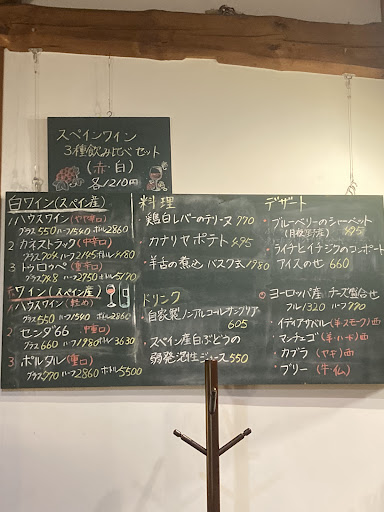 スペインワイン
3種飲み比べセット
(赤・白)
各1210円
白ワイン(スペイン産)
1 ハウスワイン(やや辛口)
グラス550 ハーフ1540 ボトル2860
2 カネストラック(中辛口)
グラス704 ハーフ2145 ボトル4180
3 トゥロッペ(重辛口)
グラス748 ハーフ2750 ボトル5170
赤ワイン(スペイン産)
1 ハウスワイン(軽め)
グラス550 ハーフ1540 ボトル2860
2 センダ66(中重口)
グラス660 ハーフ1980 ボトル3630
3 ポルタル(重口)
グラス770 ハーフ2860 ボトル5500
料理
・鶏白レバーのテリーヌ 770
・カナリヤポテト 495
・羊舌の煮込 バスク式 1980
ドリンク
・自家製ノンアルコールサングリア
605
・スペイン産白ぶどうの
弱発泡性ジュース 550
デザート
・ブルーベリーのシャーベット
495
・ライチとイチジクのコンポート
アイスのせ 660
ヨーロッパ産 チーズ盛合せ
フル1320 ハーフ770
・イディアサバル(羊スモーク)西
・マンチェゴ(羊・ハード)西
・カブラ(ヤギ)西
・ブリー(牛)仏